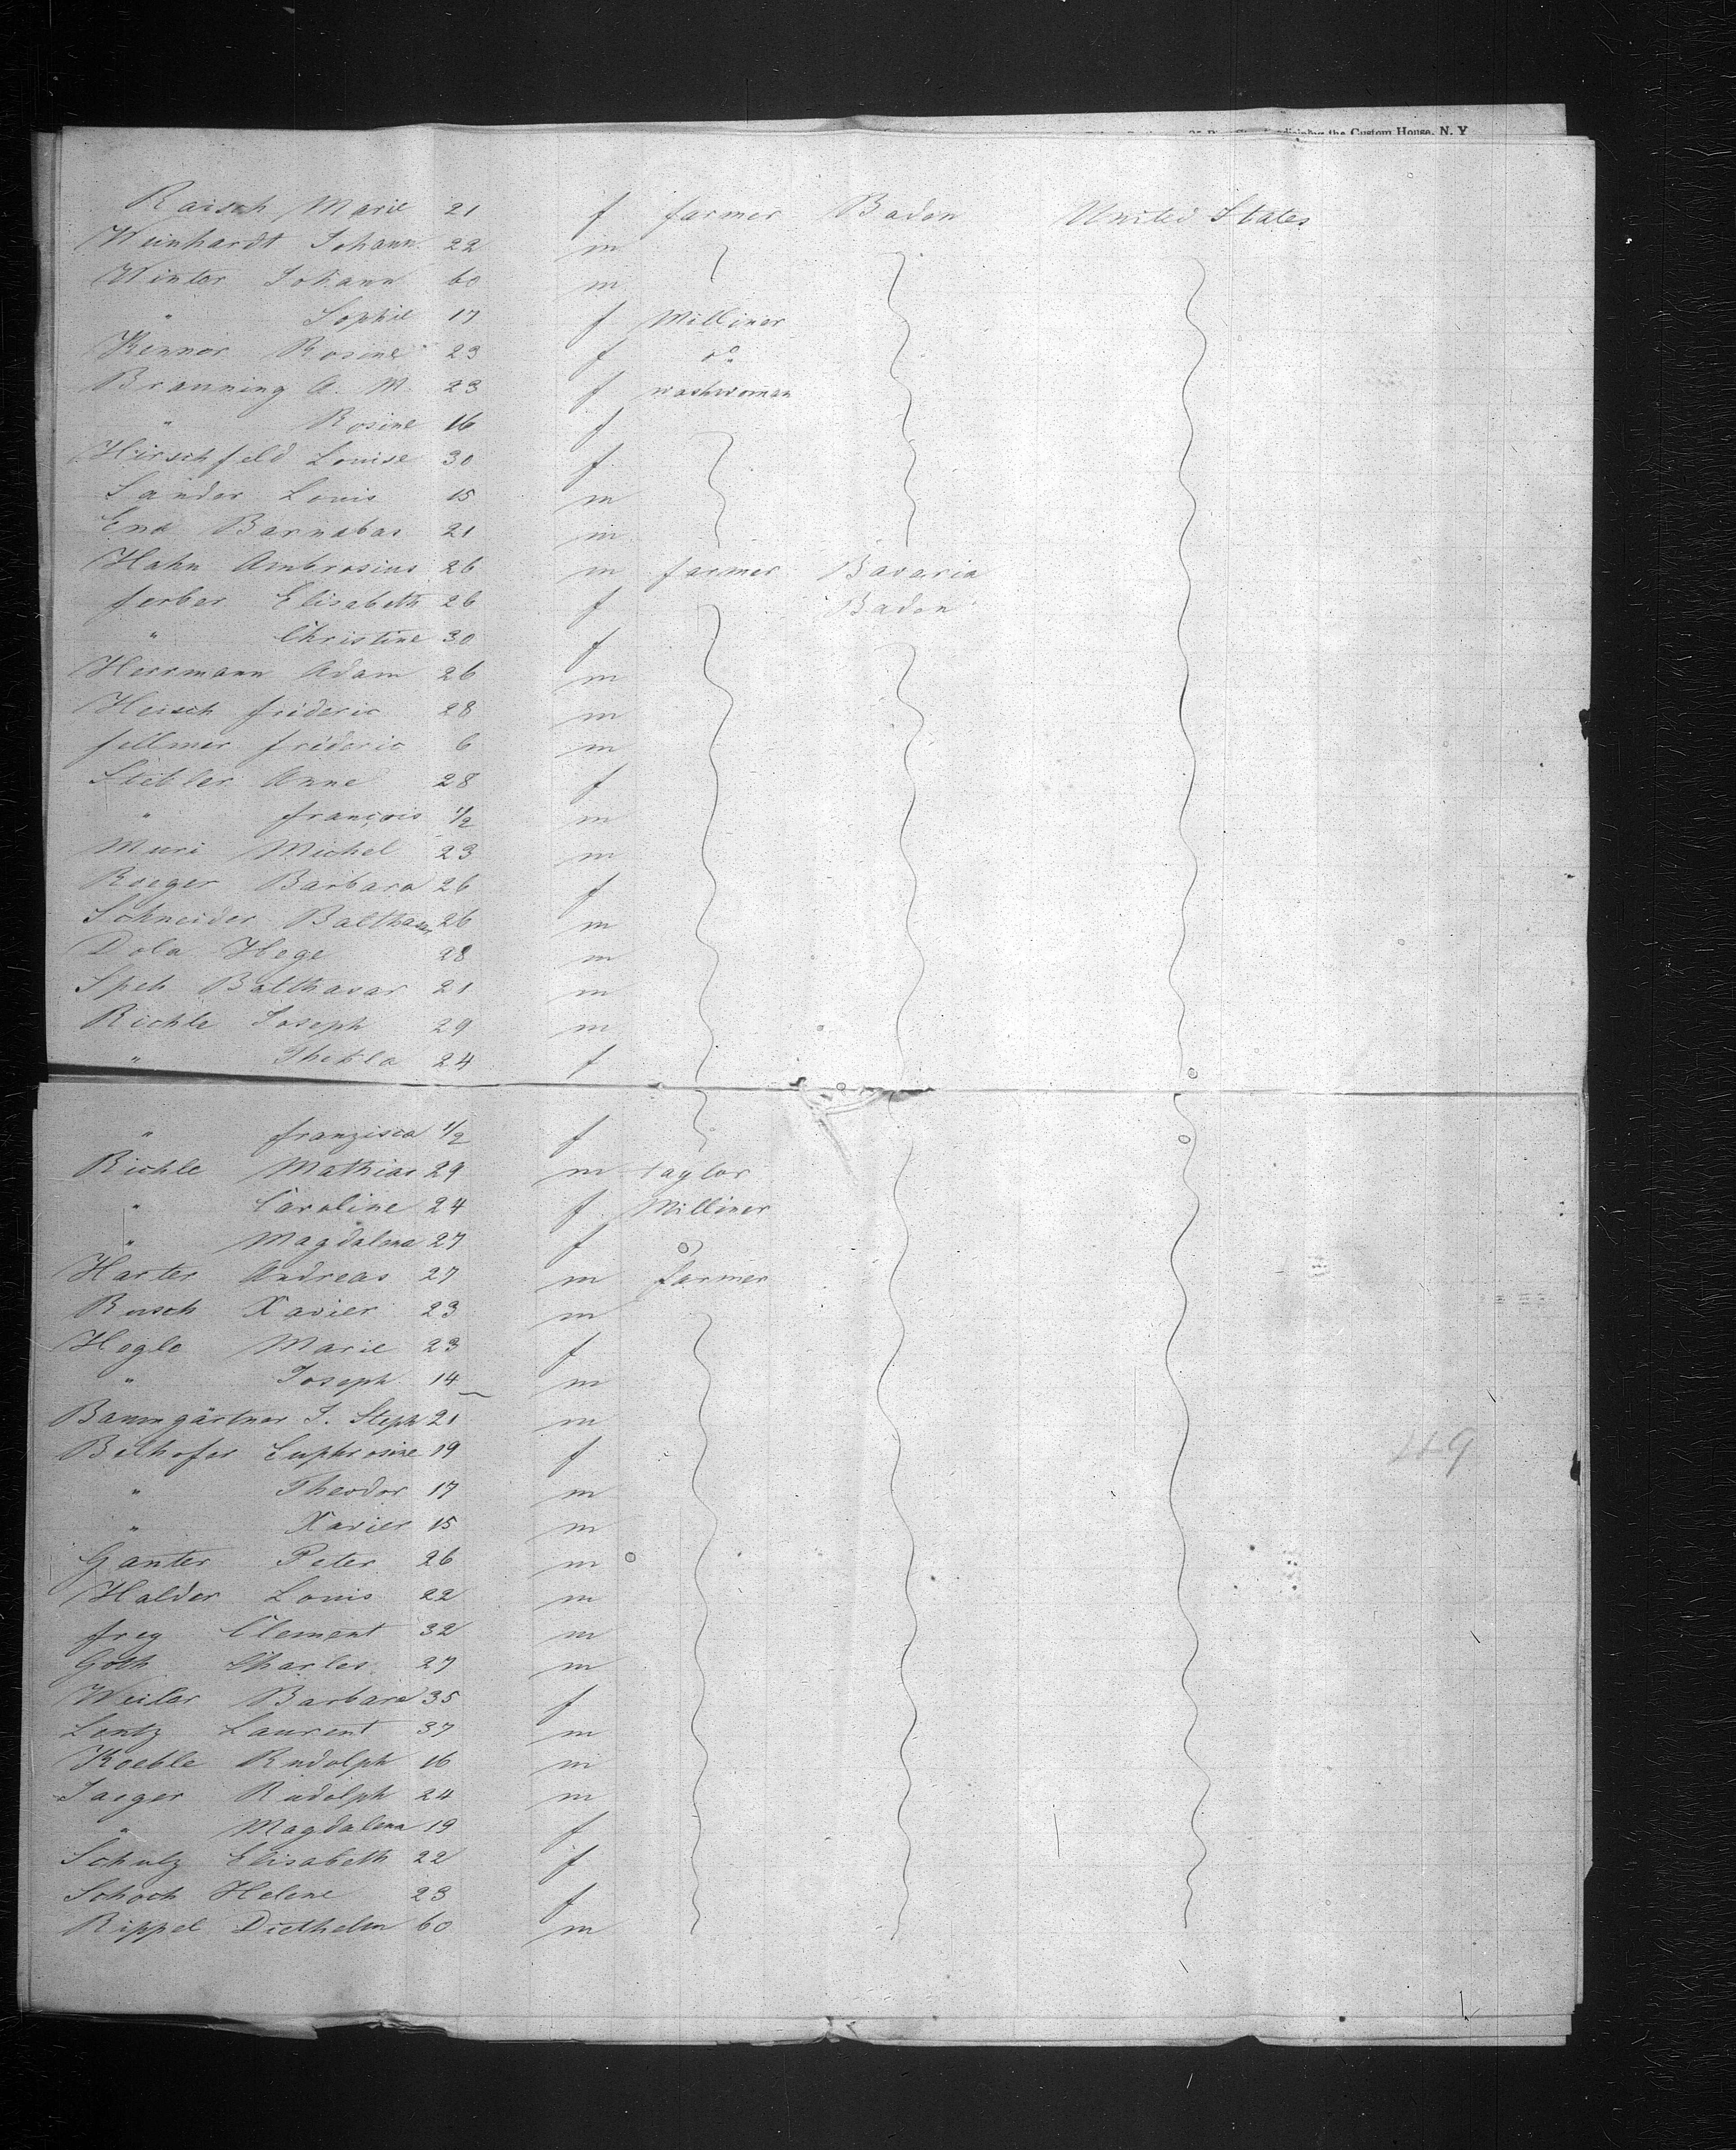 the Custom House, N. Y
Raisch Marie 21 f farmer Baden United States
Weinhardt Johann 22 m
Winter Johann 60 m
" Sophie 17 f Milliner
Kenner Rosine 23 f do
Branning A. M. 23 f washwoman
" Rosine 16 f
Hirschfeld Louise 30 f
Sander Louis 15 m
End Barnabas 21 m
Hahn Ambrosius 26 m farmer Bavaria
ferber Elisabeth 26 f Baden
" Christine 30 f
Herrmann Adam 26 m
Heisch fréderic 28 m
fellmer fréderic 6 m
Stibler Anne 28 f
" françois 1/2 m
Muri Michel 23 m
Roeger Barbara 26 f
Schneider Balthasar 26 m
Dola Hege 28 m
Speh Balthasar 21 m
Richle Joseph 29 m
" Thekla 24 f
" franzisca 1/2 f
Richle Mathias 29 m taylor
" Caroline 24 f Milliner
" Magdalena 27 f
Harter Andreas 27 m farmer
Busch Xavier 23 m
Hogle Marie 23 f
" Joseph 14 m
Baumgärtner J. Steph 21 m
Belhofer Euphrosine 19 f
" Theodor 17 m
" Xavier 15 m
Ganter Peter 26 m
Halder Louis 22 m
frey Clement 32 m
Goth Charles 27 m
Weiler Barbara 35 f
Lentz Laurent 37 m
Koeble Rudolph 16 m
Jaeger Rudolph 24 m
" Magdalena 19 f
Schulz Elisabeth 22 f
Schoch Helene 23 f
Rippel Diethelm 60 m